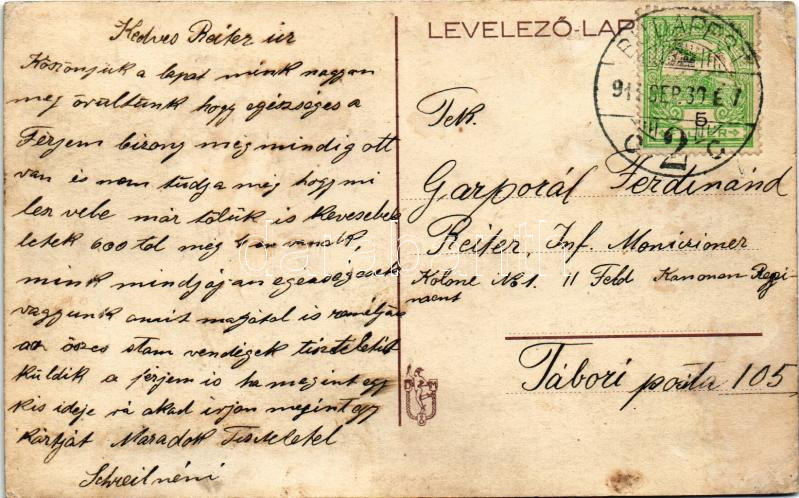 Kedves Reiter úr
Köszönjük a lapat mink nagyon
meg örültünk hogy egészséges a
Férjem bizony még mindig ott
van is nem tudja még hogy mi
lez vele már tölük is kevesebek
letek 600 tol még
mink mindjájan egenségesek
vagyunk amit magátol is reméljük
az öszes stam vendégek tiszteletit
küldik a férjem is ha megint egy
kis ideje rá akad irjon megint egy
kártyát Maradok Tisztelettel
Schreilnéni
LEVELEZŐ-LAP
BUDAPEST
91 SEP. 30 E 7
2
5
Tek.
Garporál Ferdinánd
Reiter, Inf. Monicioner
Kolone No 1. 11 Feld Kanonen Regi-
ment
Tábori posta 105
D M
darabanth